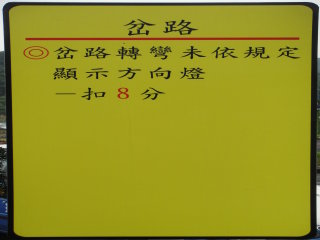 岔路
◎岔路轉彎未依規定
顯示方向燈
一扣8分